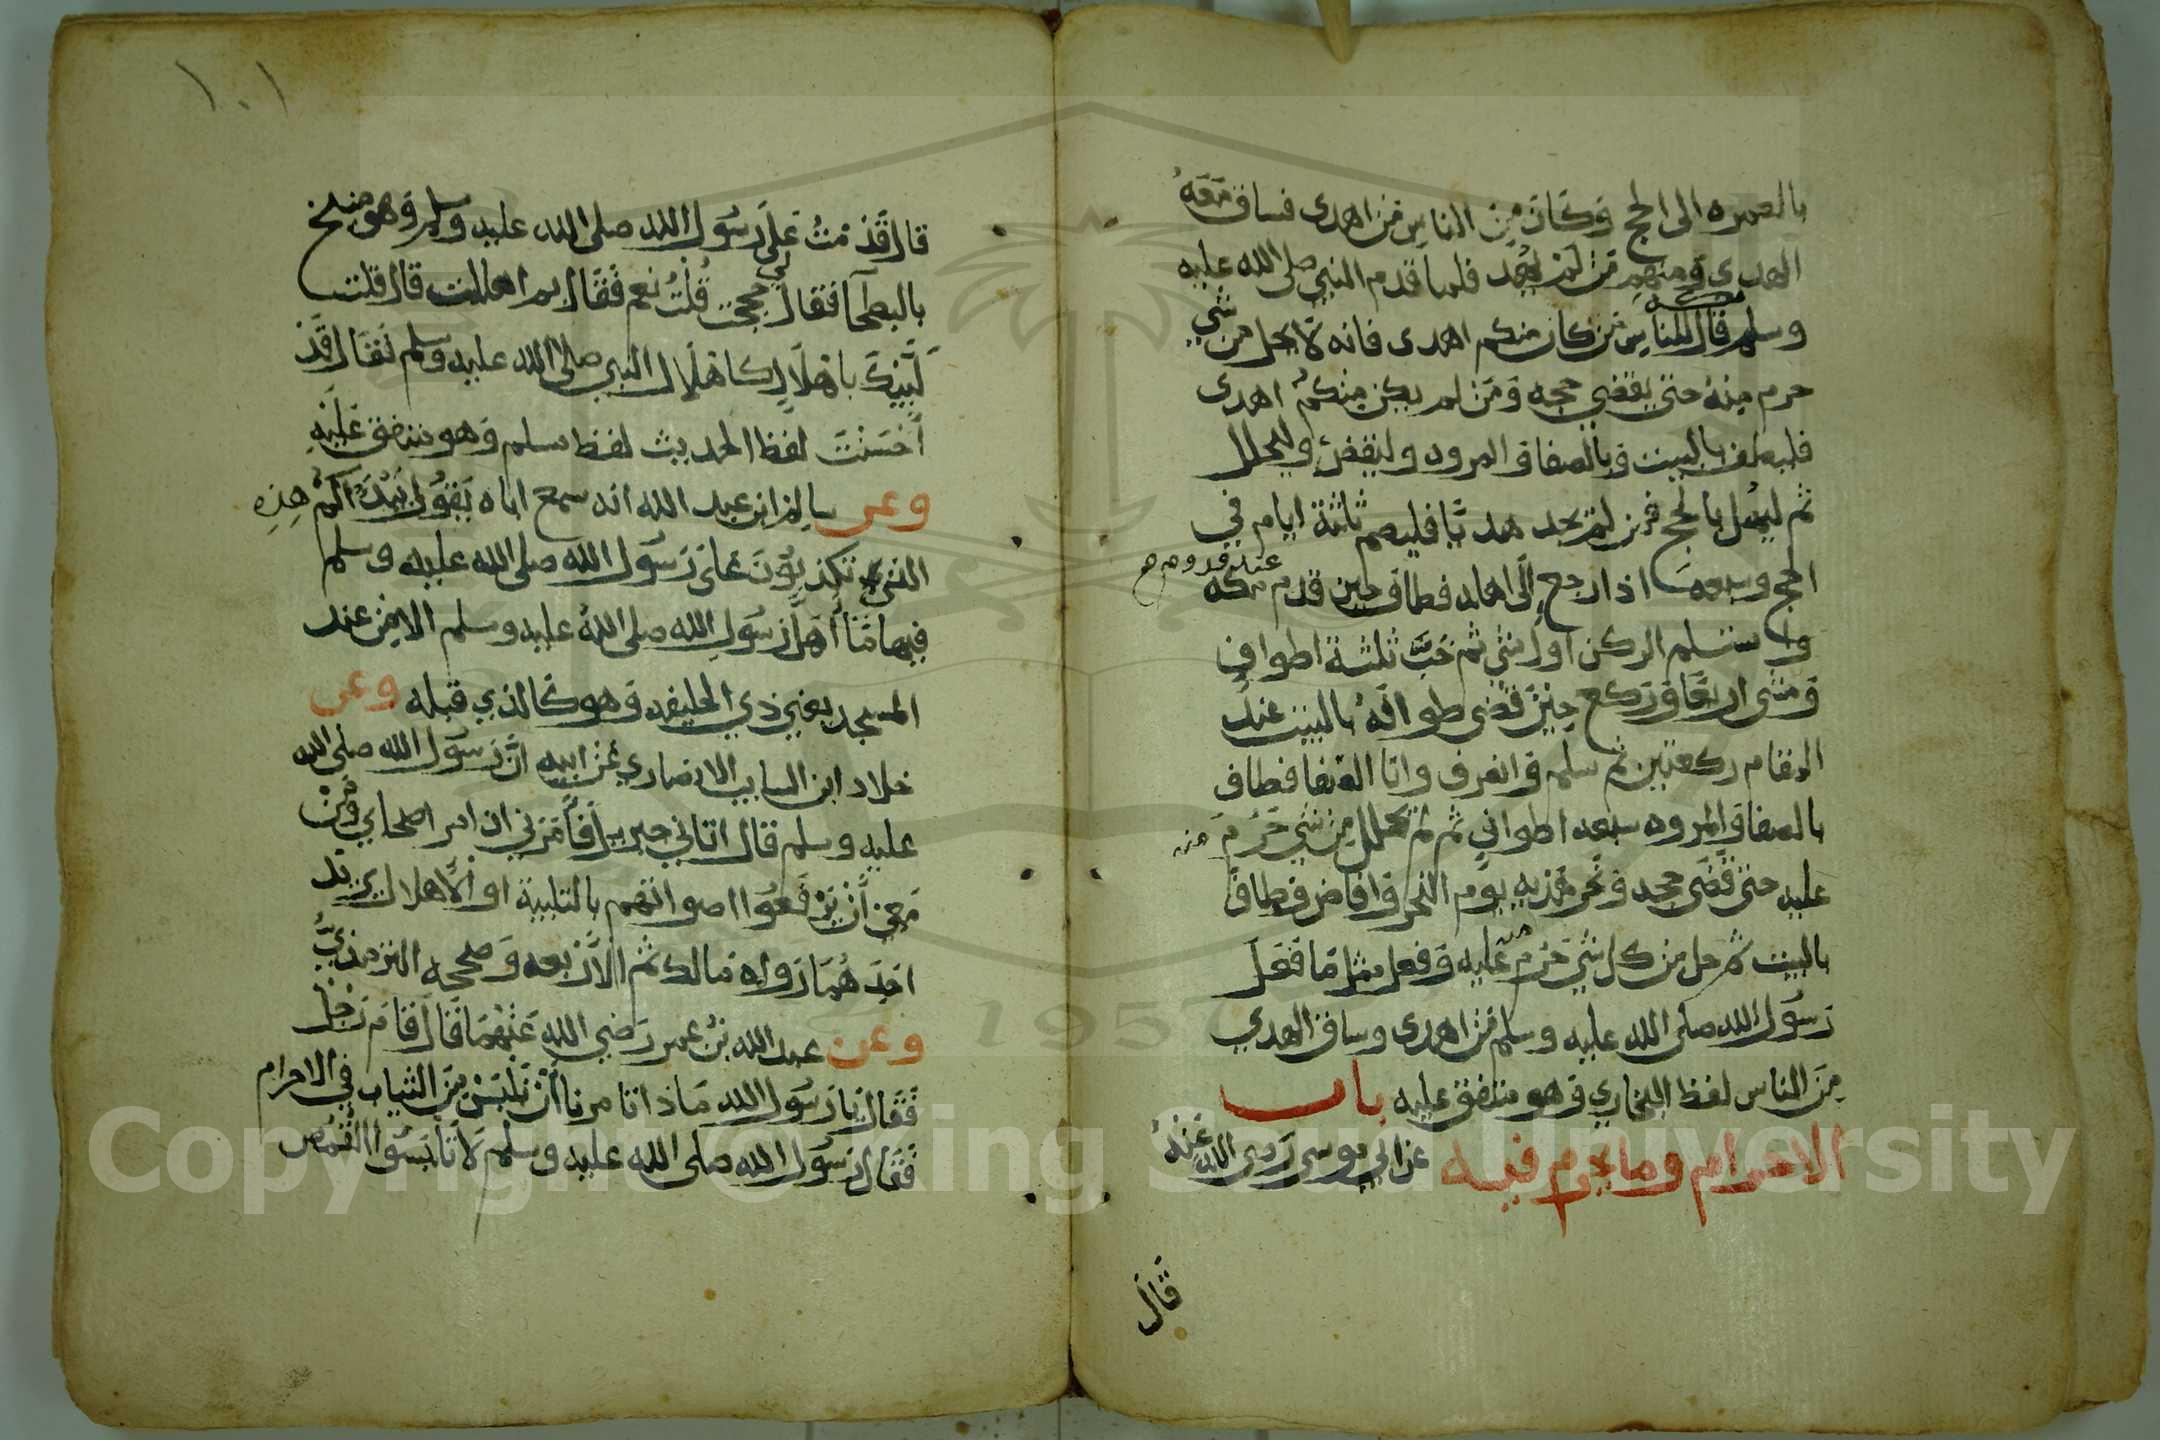 بالعمره الى الحج وَكَانَ مِنَ الناسِ مَن اهدى فساق مَعَهُ
الهدي ومنهم مَن لم يُهد فلما قدم النبي صلى الله عليه
وسلم مكه قال للناس مَن كان منكم اهدى فانه لا يحل من شي
حرم مِنهُ حتى يقضي حجه وَمَن لم يكن مِنكمُ اهدى
فليطف بالبيت وبالصفا والمروه وليقصر وليحلل
ثم ليُهل بالحج فمن لم يجد هديًا فليصم ثلثة ايام في
الحج وسبعة اذا رجع الى اهله فطاف حين قدم مكه
عند قدومه
واستلم الركن اول شي ثم خبَّ ثلثة اطوافٍ
وَمشى اربعًا وَرَكع حِينَ قضى طوافَهُ بالبيت عند
المقام ركعتين ثم سلم وانصرف واتا الصفا فطاف
بالصفا والمروه سبعه اطوافٍ ثم لم يحلل مِن شي حَرُمَ منه
عليه حتى قَضَى حجه وَنحر هَديه يَوم النحر وَافاض وطافَ
بالبيت ثم حل من كل شي حَرُم منه عليه وَفعل مثل مَا فَعَلَ
رَسُول الله صلى الله عليه وسلم مَن اهدى وساق الهدي
مِنَ الناس لفظ البخاري وَهو متفق عليه باب
الاحرام وما يحرم فيه عن ابي موسى رَضى الله عَنهُ
قَالَ
١٠١
قال قَدِمْتُ عَلَى رَسُول الله صلى الله عليه وسلم وَهو منيخ
بالبطحآ فقال لي حججت قُلتُ نعم فقال بم اهللت قال قلت
لَبَّيْكَ باهْلَالٍ كاهْلَال النبي صلى الله عليه وسلم فَقَال قَدْ
أَحْسَنْتَ لفظ الحديث لفظ مسلم وَهو متفق عَلَيْهِ
وعن سالم ابن عبد الله انه سمع اباه يَقُول بَيْدَاؤكمُ هذِهِ
التي تكذبُوُنَ عَلى رَسُول الله صلى الله عليه وسلم
فيها مَا أَهَلَّ رَسُول الله صلى اللهُ عليه وسلم الا مِن عند
المسجد يعني ذي الحليفه وَهو كالذي قبله وعن
خلاد ابن السايب الانصاري عَنْ ابيه انَّ رَسُول الله صلى الله
عليه وسلم قال اتاني جبريل فَأَمَرَني ان امر اصحابي وَمَنْ
مَعِي أَنْ يَرْفَعُوا اصواتهم بالتلبية او الْأهلال يريد
احَدَهُمَا رَواه مَالك ثم الْأَرْبعه وَصححه الترمذيُّ
وعن عبد الله بنُ عمر رَضي الله عَنْهُمَا قَالَ قَامَ رَجُل
فَقَال يَا رَسُول الله مَاذا تامرنا أَنْ نَلْبَسْ مِنَ الثياب في الاحرام
فَقَال رَسُول الله صلى الله عليه وسلم لَا تَلْبَسُوا القُمُص
Copyright © King Saud University
1957